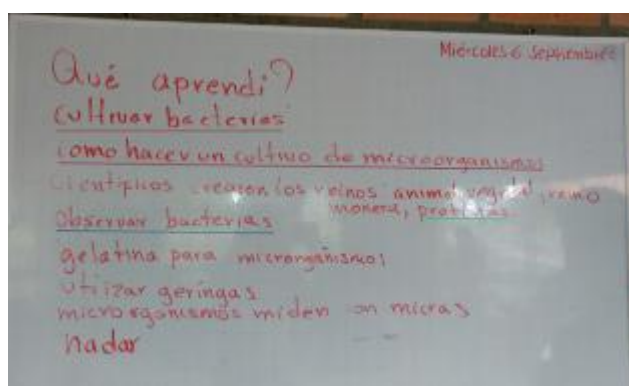 Miércoles 6 septiembre
Qué aprendi?
cultivar bacterias
como hacer un cultivo de microorganismos
Cientificos crearon los reinos animal, vegetal, reino
monera, protistas
Observar bacterias
gelatina para microrganismos
utilizar geringas
microorganismos miden en micras
nadar